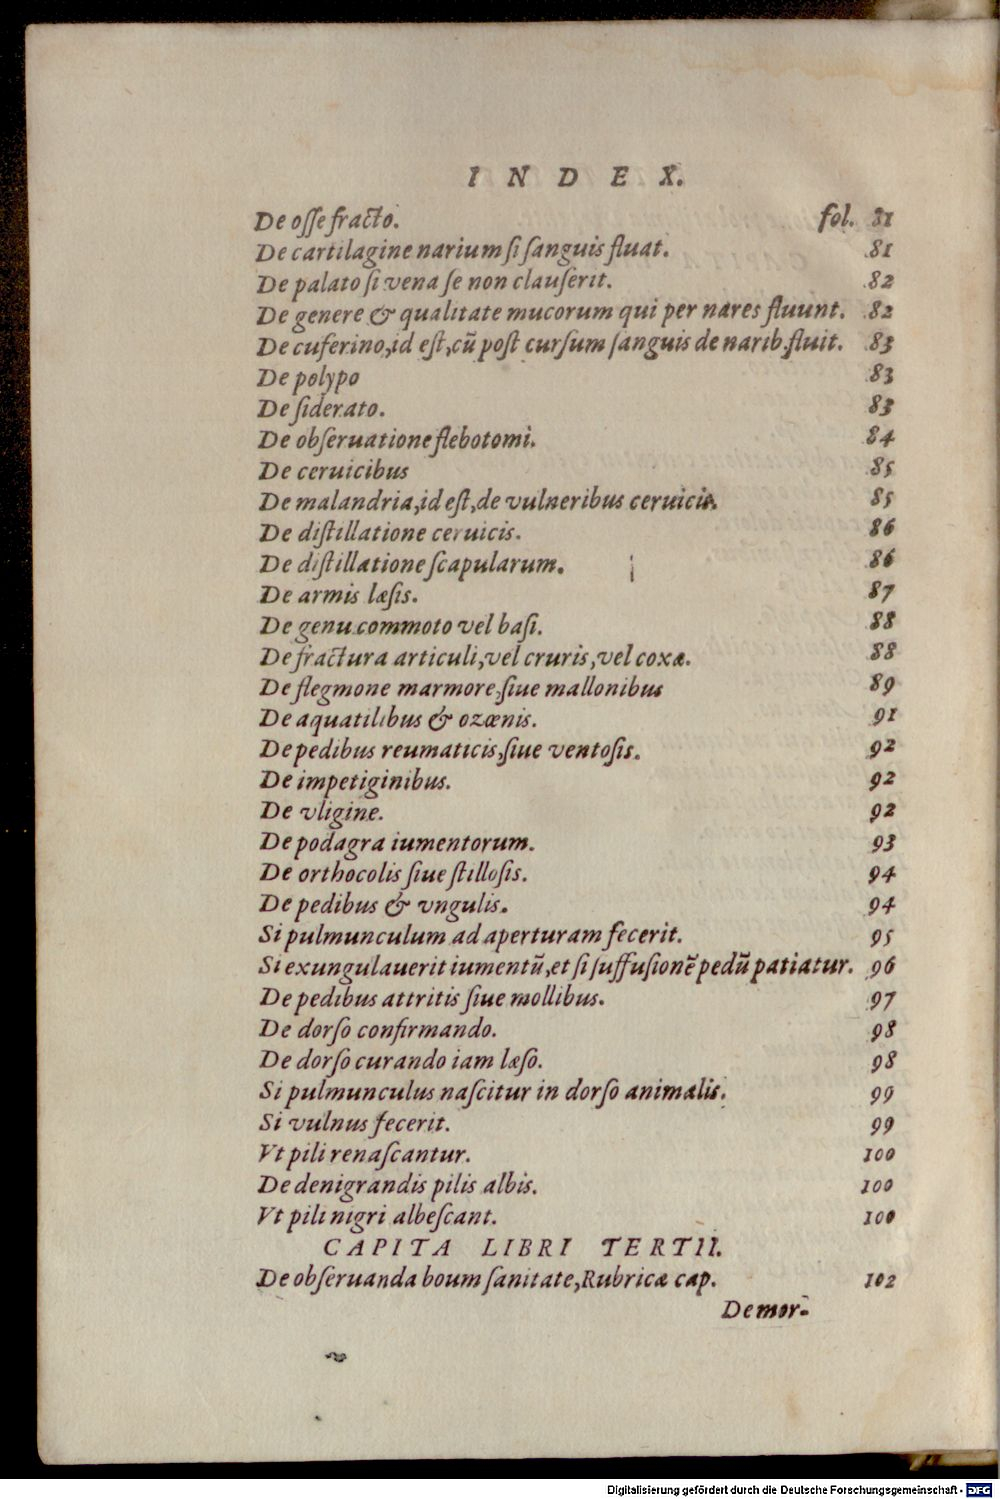 INDEX.
De osse fracto. fol. 81
De cartilagine narium si sanguis fluat. 81
De palato si vena se non clauserit. 82
De genere & qualitate mucorum qui per nares fluunt. 82
De cuferino, id est, cũ post cursum sanguis de narib. fluit. 83
De polypo 83
De siderato. 83
De obseruatione flebotomi. 84
De ceruicibus 85
De malandria, id est, de vulneribus ceruicis. 85
De distillatione ceruicis. 86
De distillatione scapularum. 86
De armis læsis. 87
De genu commoto vel basi. 88
De fractura articuli, vel cruris, vel coxæ. 88
De flegmone marmore, siue mallonibus 89
De aquatilibus & ozænis. 91
De pedibus reumaticis, siue ventosis. 92
De impetiginibus. 92
De vligine. 92
De podagra iumentorum. 93
De orthocolis siue stillosis. 94
De pedibus & vngulis. 94
Si pulmunculum ad aperturam fecerit. 95
Si exungulauerit iumentũ, et si suffusionẽ pedũ patiatur. 96
De pedibus attritis siue mollibus. 97
De dorso confirmando. 98
De dorso curando iam læso. 98
Si pulmunculus nascitur in dorso animalis. 99
Si vulnus fecerit. 99
Vt pili renascantur. 100
De denigrandis pilis albis. 100
Vt pili nigri albescant. 100
CAPITA LIBRI TERTII.
De obseruanda boum sanitate, Rubricæ cap. 102
De mor-
Digitalisierung gefördert durch die Deutsche Forschungsgemeinschaft - DFG